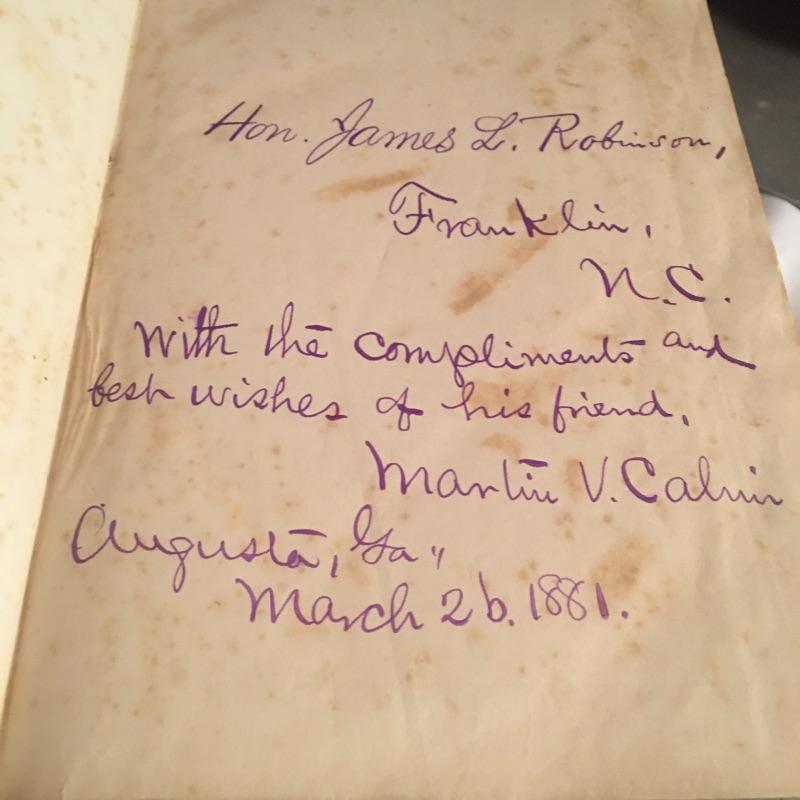 Hon. James L. Robinson,
Franklin,
N.C.
With the compliments and
best wishes of his friend,
Martin V. Calvin
Augusta, Ga.,
March 26. 1881.